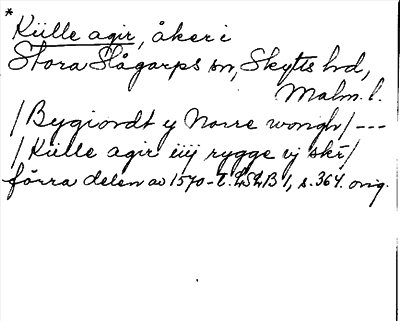 *
Külle agir, åker i
Stora Slågarps sn, Skytts hd,
Malm. l.
/Bygiordt y Norre wongh/---
/Külle agir iiij rygge vj skr/
förra delen av 1570-t. LSLB 1, s. 364. orig.